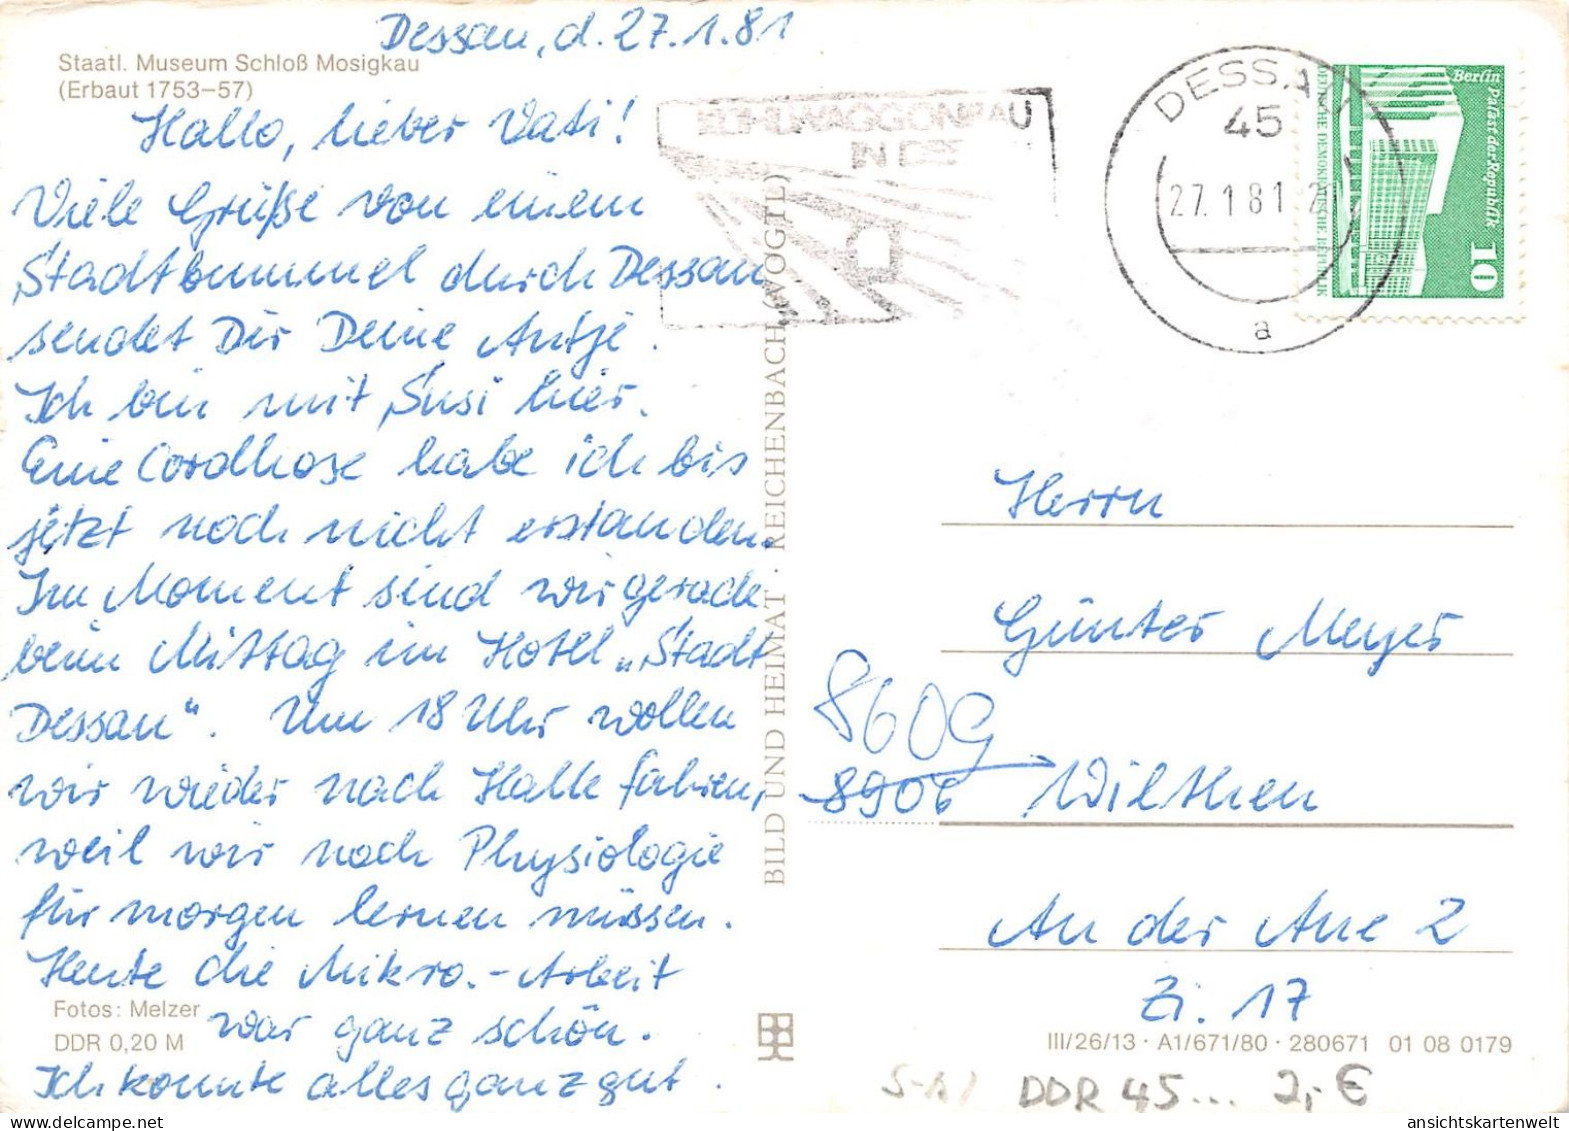 Dessau, d. 27.1.81
Staatl. Museum Schloß Mosigkau
(Erbaut 1753–57)
Hallo, lieber Vati!
Viele Grüße von einem
Stadtbummel durch Dessau
sendet Dir Deine Antje.
Ich bin mit Susi hier.
Eine Cordhose habe ich bis
jetzt noch nicht erstanden.
Im Moment sind wir gerade
beim Mittag im Hotel „Stadt
Dessau“. Um 18 Uhr wollen
wir wieder nach Halle fahren,
weil wir noch Physiologie
für morgen lernen müssen.
Heute die Mikro.-Arbeit
war ganz schön.
Ich konnte alles ganz gut.
Fotos: Melzer
DDR 0,20 M
BILD UND HEIMAT REICHENBACH (VOGTL)
DESSAU
45
27.1.81
a
DEUTSCHE DEMOKRATISCHE REPUBLIK
Berlin Palast der Republik
10
Herrn
Günter Meyer
8609
8906 Wilthen
An der Aue 2
Zi. 17
III/26/13 · A1/671/80 · 280671 01 08 0179
DDR 45... 2,- €
ansichtskartenwelt